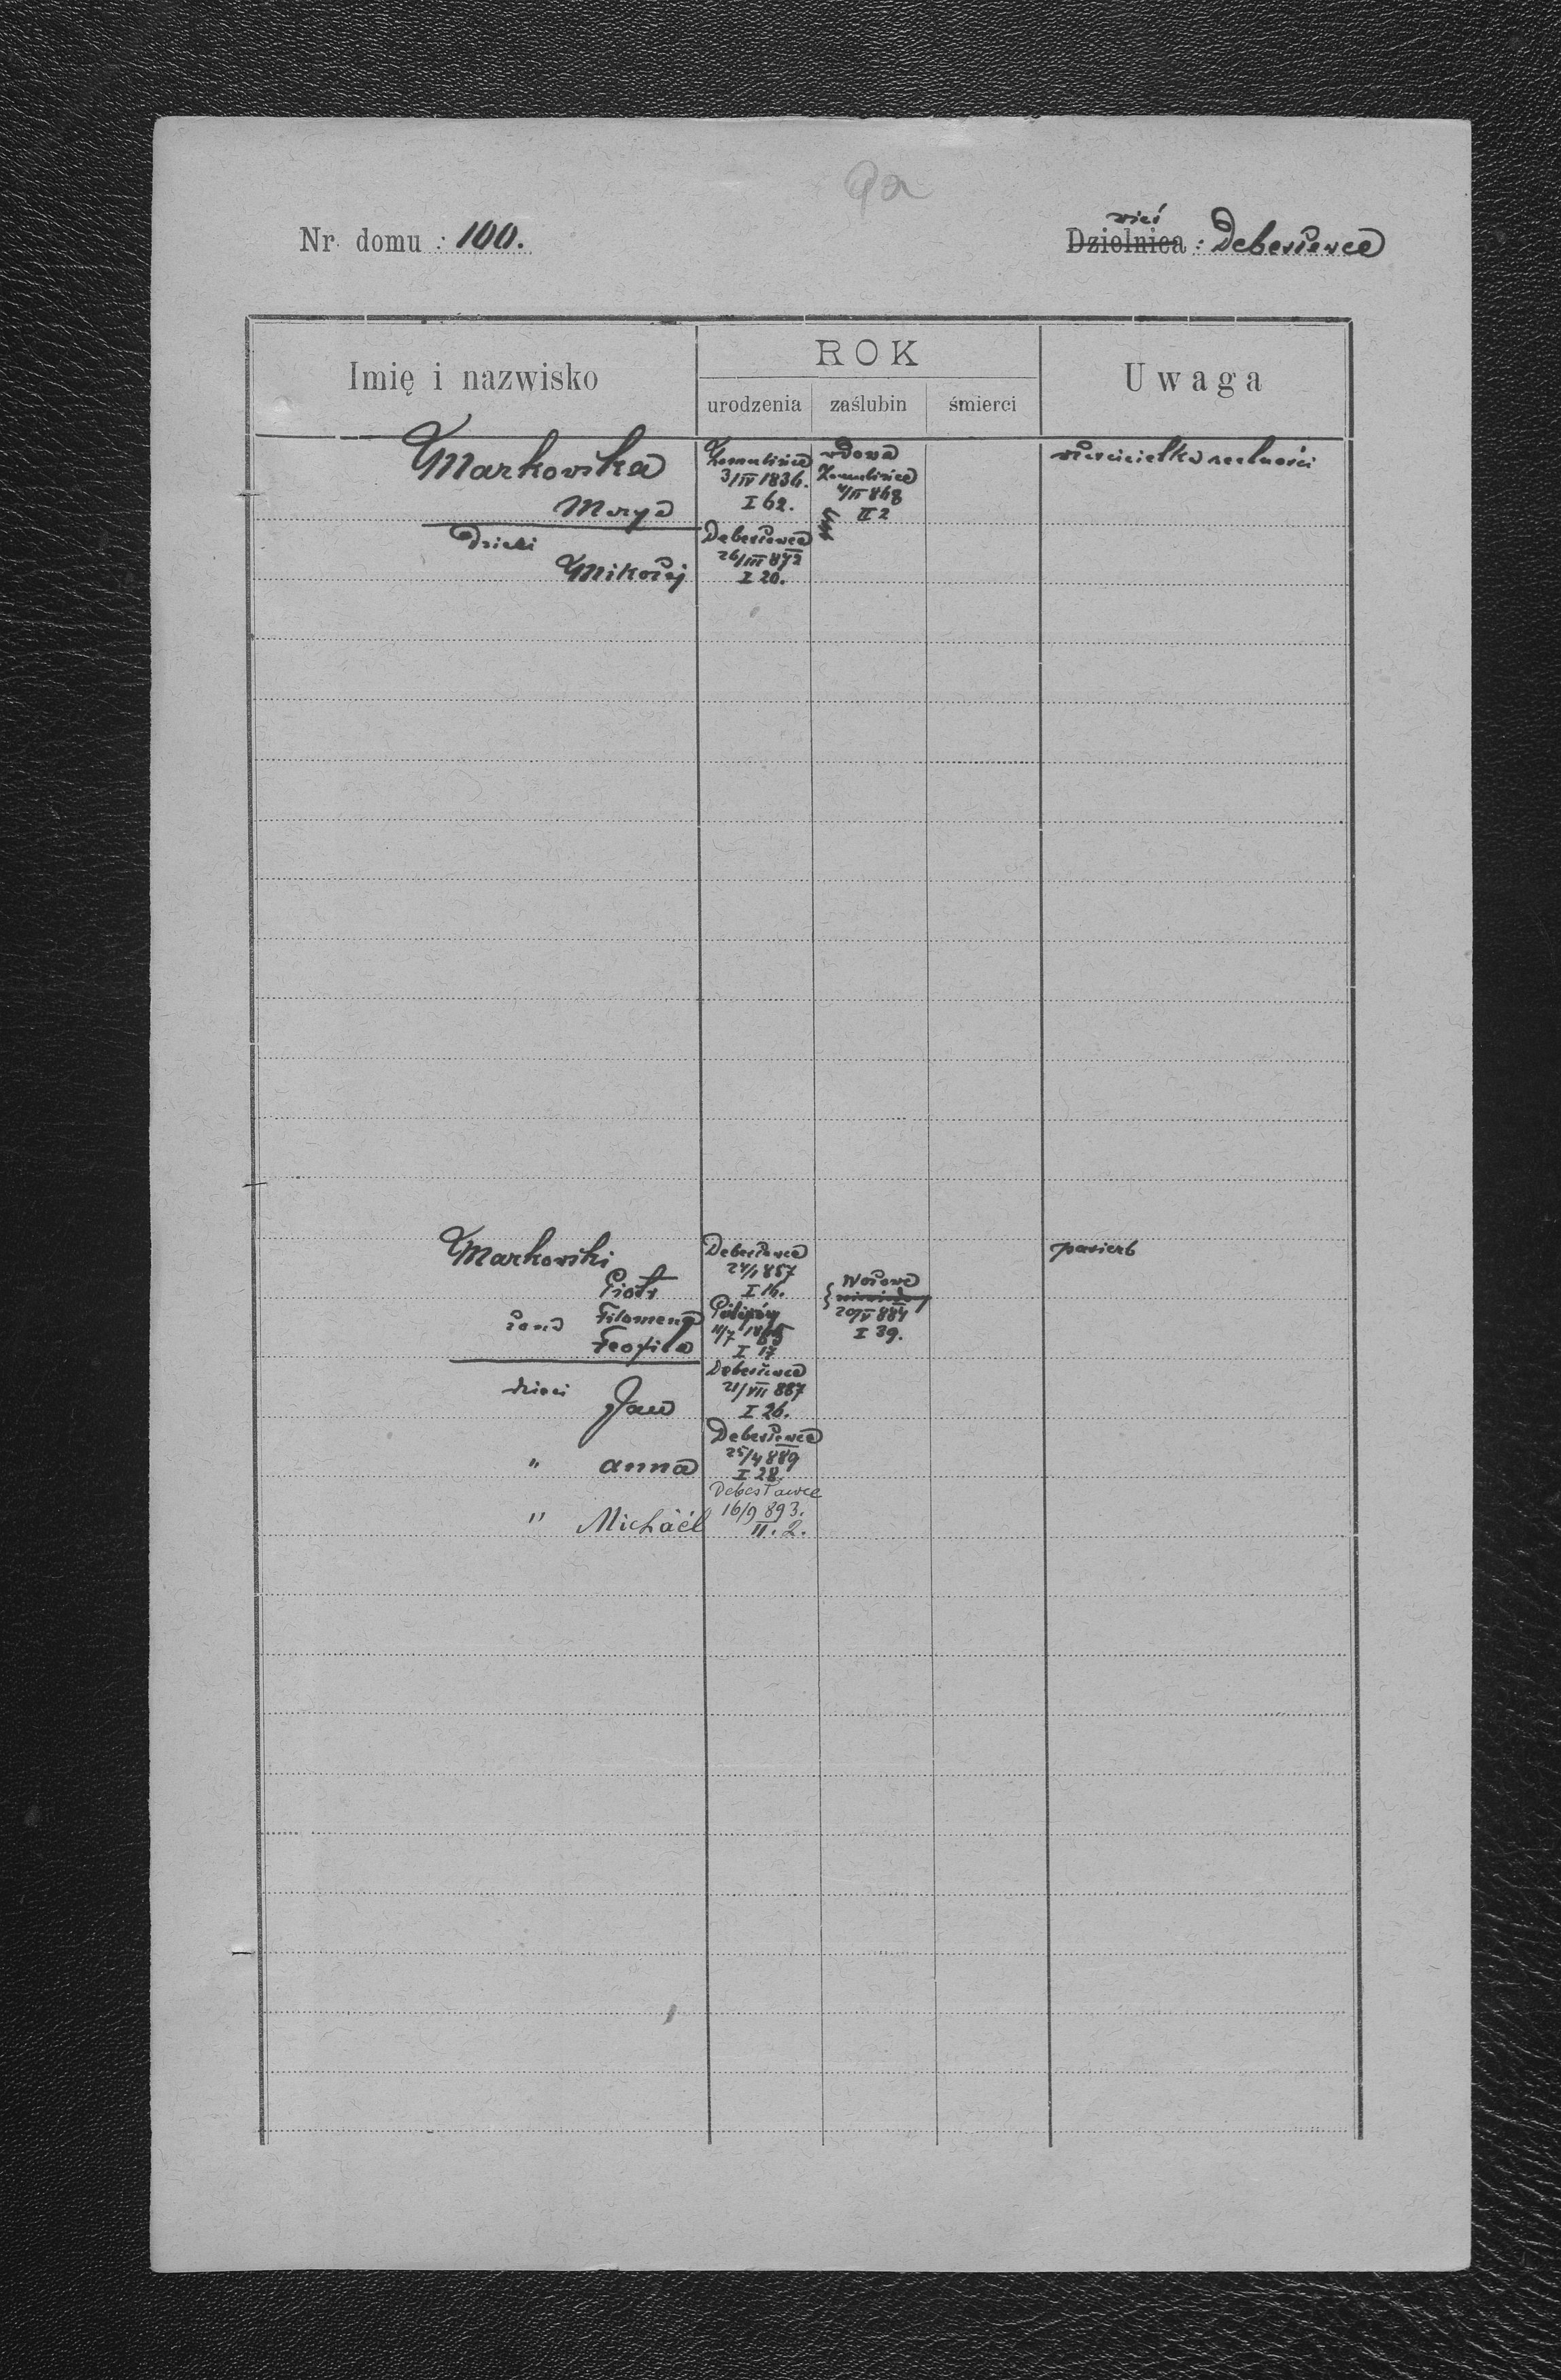 9a
Nr domu : 100.
wieś
Dzielnica : Debesławce
Imię i nazwisko
ROK
Uwaga
urodzenia
zaślubin
śmierci
Markowska
Marya
3/IV 1836.
I 62.
wdowa
4/II 868
II 2
właścicielka realności
Dzieci
Mikołaj
Debesławce
26/III 872
I 20.
Markowski
Piotr
Debesławce
24/1 857
I 16.
pasierb
żona Filomena
Teofila
11/7 1865
I 17
20/V 884
I 39.
dzieci Jan
Debesławce
21/VII 887
I 26.
" Anna
Debesławce
25/4 889
I 28
" Michael
Debesławce
16/9 893.
II. 2.